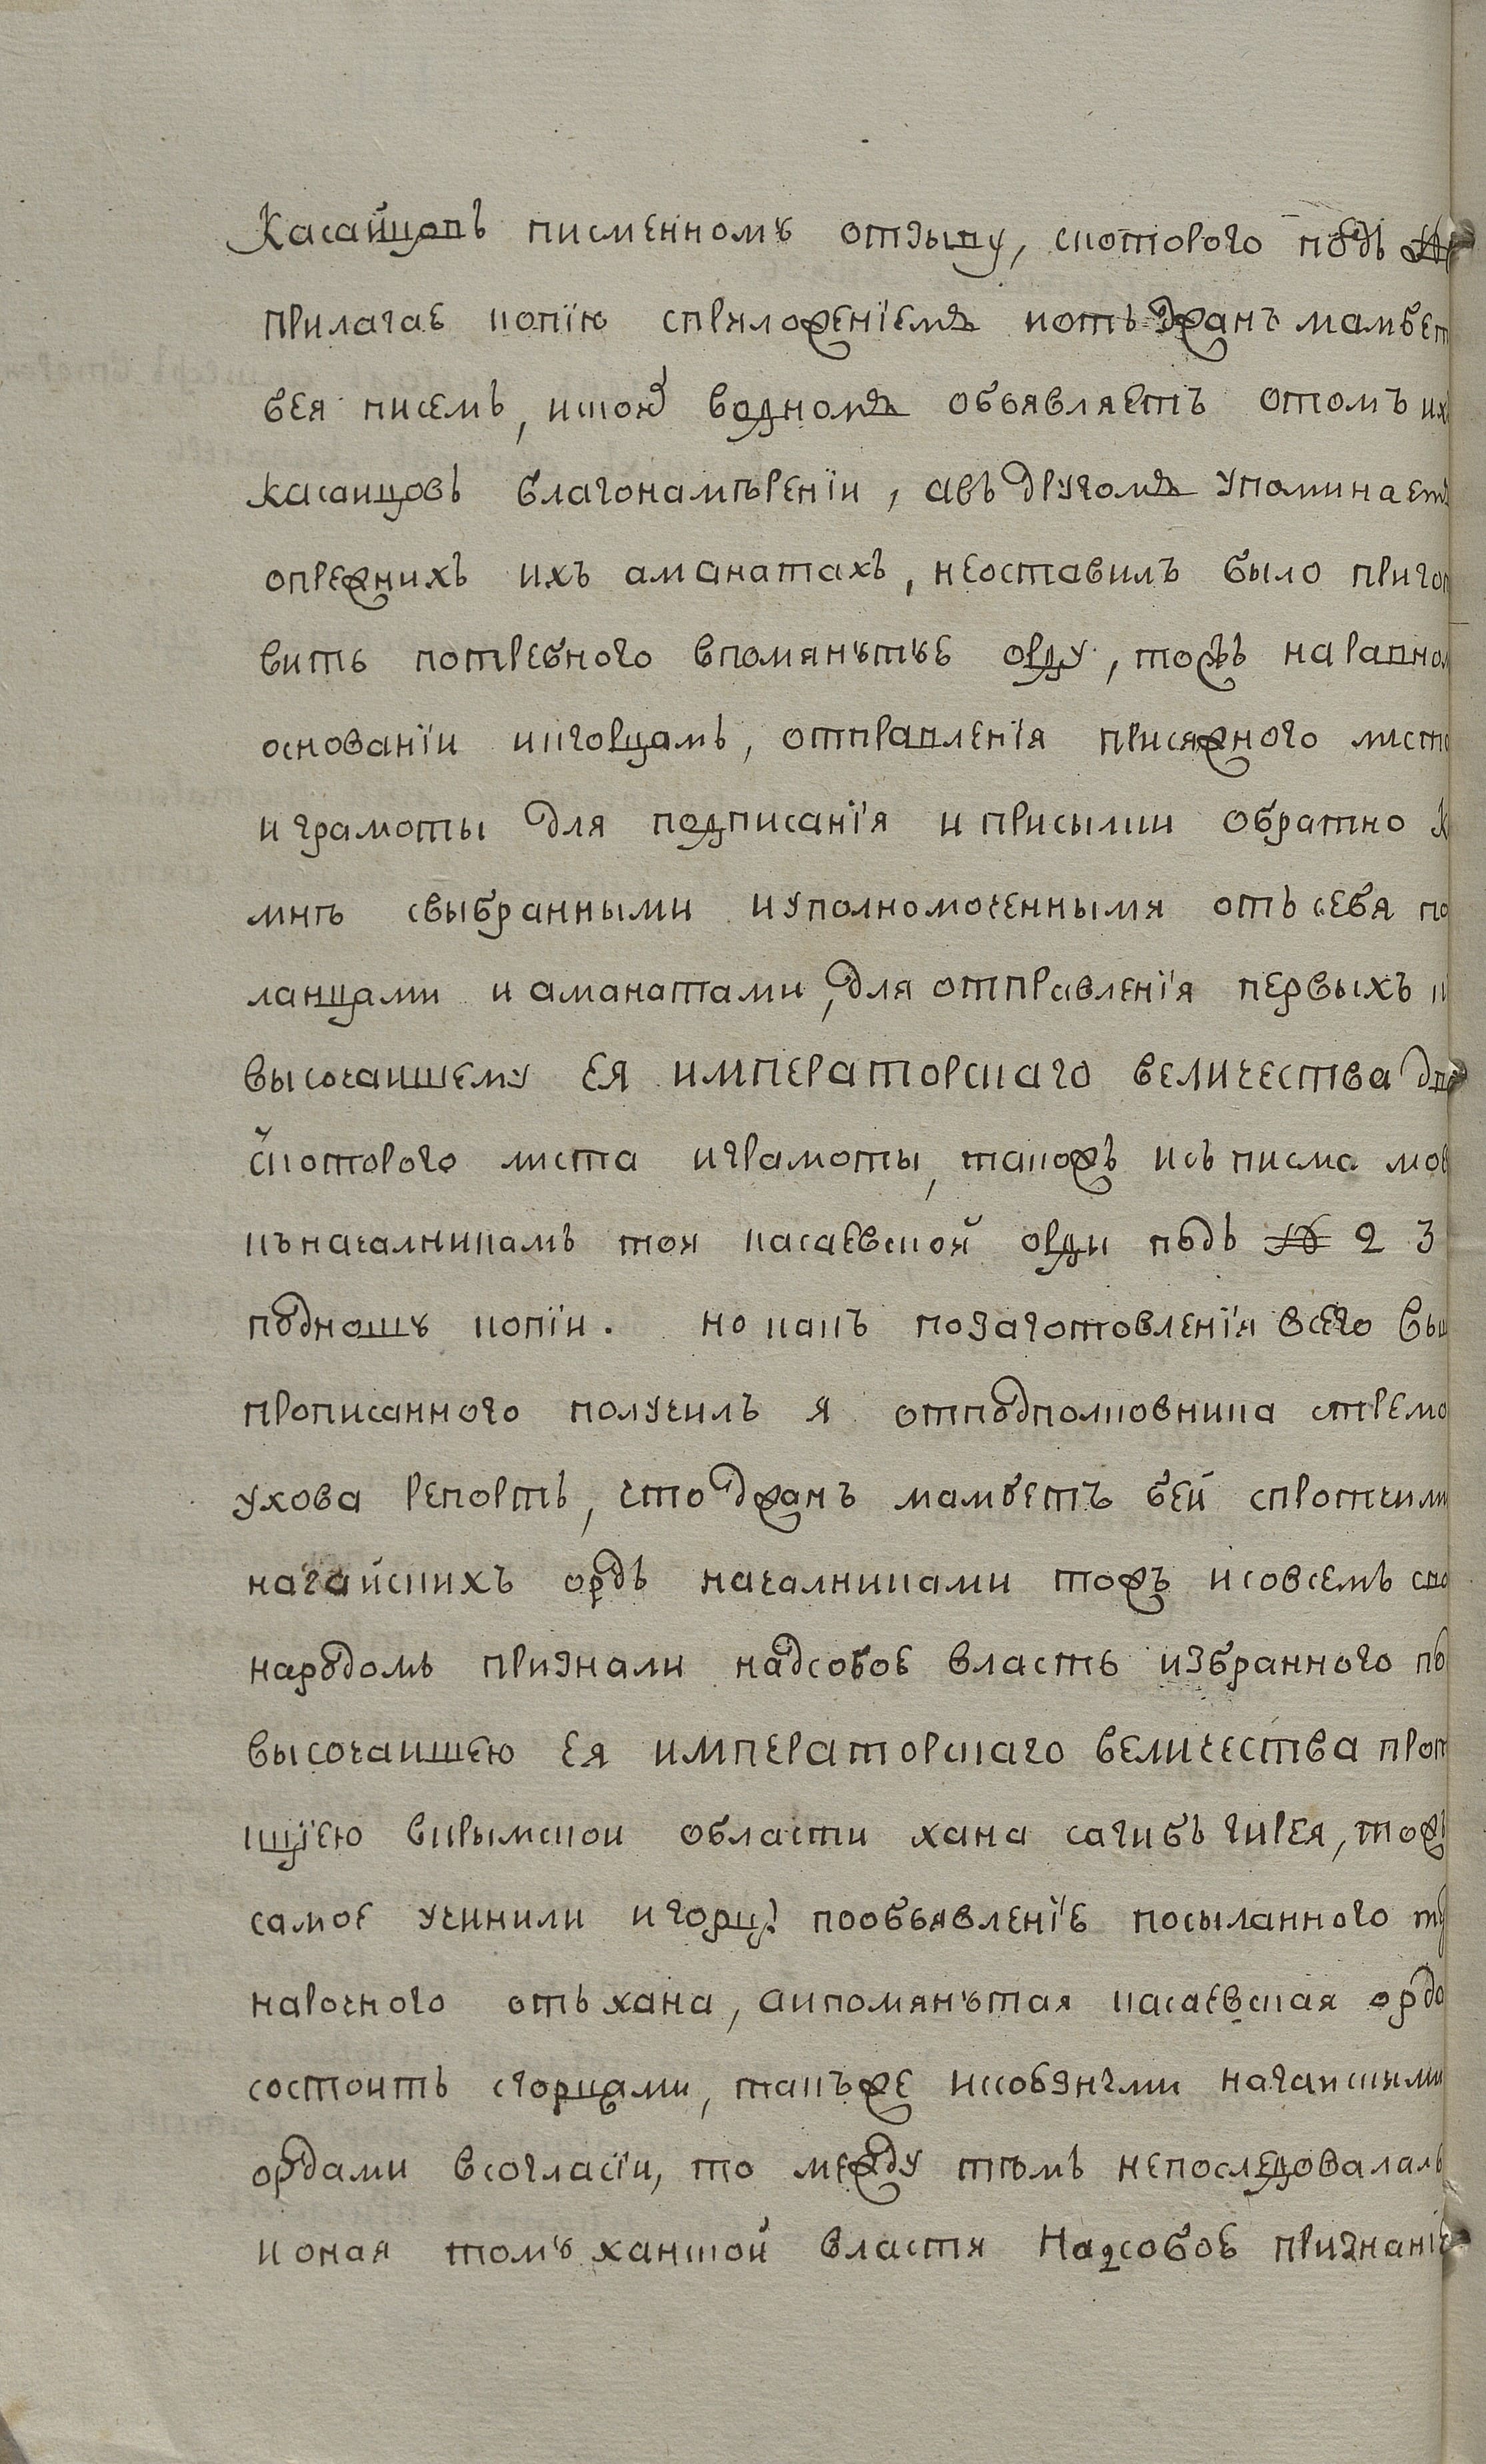 Касайцовъ писменномъ отзыву, с которого подъ №
прилагаѣ копїю с приложенїемъ и отъ джанъ мамбетъ
бея писемъ, и кой в одномъ объявляетъ о томъ их
касайцовъ благонамѣренїи, а въ другомъ упоминаетъ
о прежнихъ ихъ аманатахъ, не оставилъ было пригот
вить потребного в помянутую орду, тожъ на равном
основанїи и к горцамъ, отправленїя присяжного листа
и грамоты для подписанїя и присылки обратно к
мнѣ с выбранными и уполномоченными отъ себя пос
ланцами и аманатами, для отправленїя первыхъ к
высочаишему ея императорскаго величества дво
с которого листа и грамоты, такожъ и съ писма мое
къ началникамъ той касаевской орди подъ № 2 3
подношу копїи. но какъ по заготовленїя всего выш
прописанного получилъ я от подполковника стремо
ухова репортъ, что джанъ мамбетъ бей с протчими
нагайскихъ ордъ началниками тожъ и совсемъ сво
народомъ признали над собоѣ власть избранного по
высочаишею ея императорскаго величества прот
кцїею в крымскои области хана сагибъ гирея, тожъ
самое учинили и горцы по объявленїѣ посыланного ту
нарочного отъ хана, а и помянутая касаевская орда
состоитъ с горцами, такъже и с собзными нагаискими
ордами в согласїи, то между тѣмъ не последовалаль
и оная тому ханской власти над собоѣ признанїе